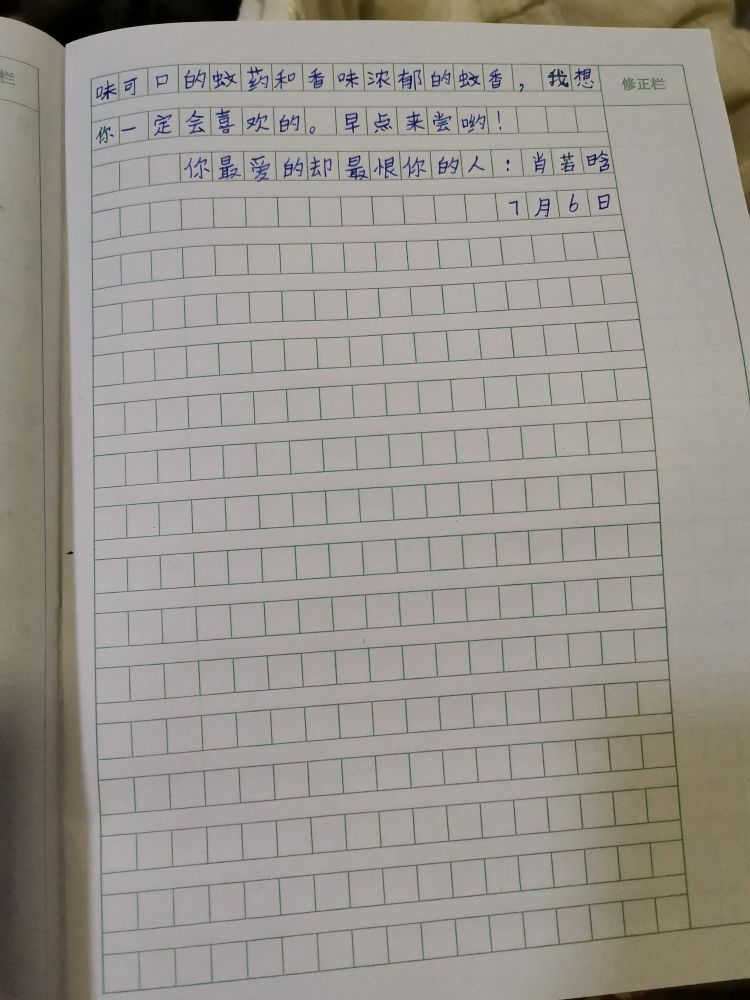 栏
修正栏
味可口的蚊药和香味浓郁的蚊香，我想
你一定会喜欢的。早点来尝哟！
你最爱的却最恨你的人：肖若晗
7月6日